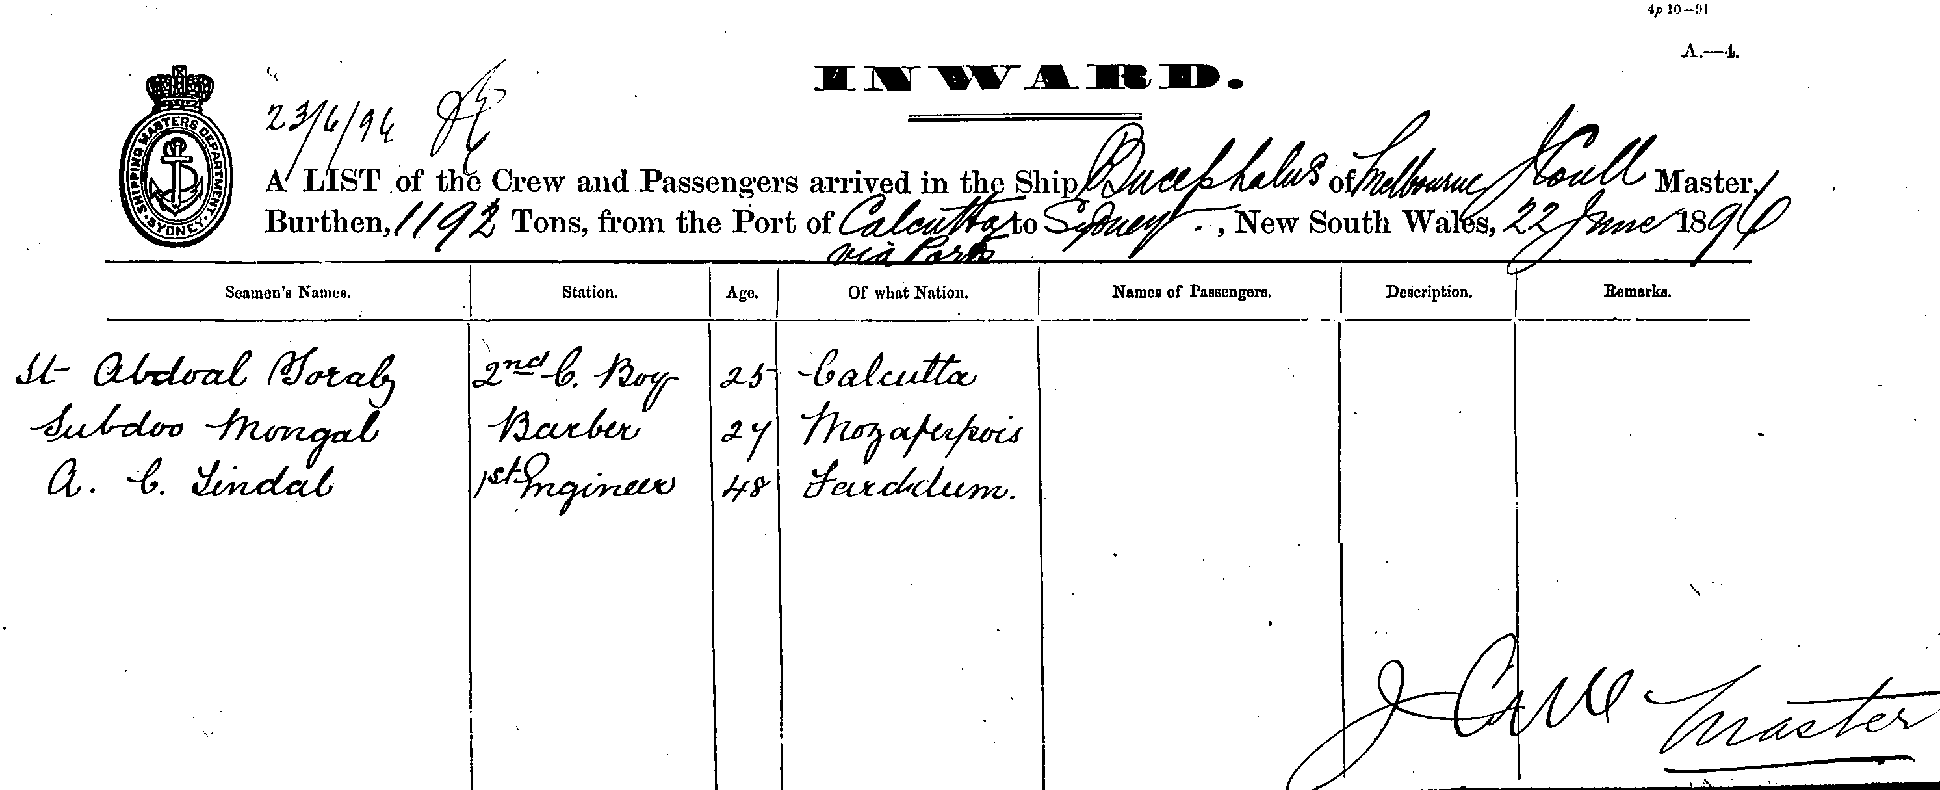 4p 10—91
A.—4.
INWARD.
SHIPPING MASTERS DEPARTMENT SYDNEY
23/6/96
A LIST of the Crew and Passengers arrived in the Ship Bucephalus of Melbourne J Coull Master,
Burthen, 1192 Tons, from the Port of Calcutta to Sydney, New South Wales, 22 June 1896
via Ports
Seamen's Names. Station. Age. Of what Nation. Names of Passengers. Description. Remarks.
St Abdoal Goraby 2nd C. Boy 25 Calcutta
Subdoo Mongal Barber 27 Mozaferpois
A. C. Lindal 1st Engineer 48 
J Coull Master